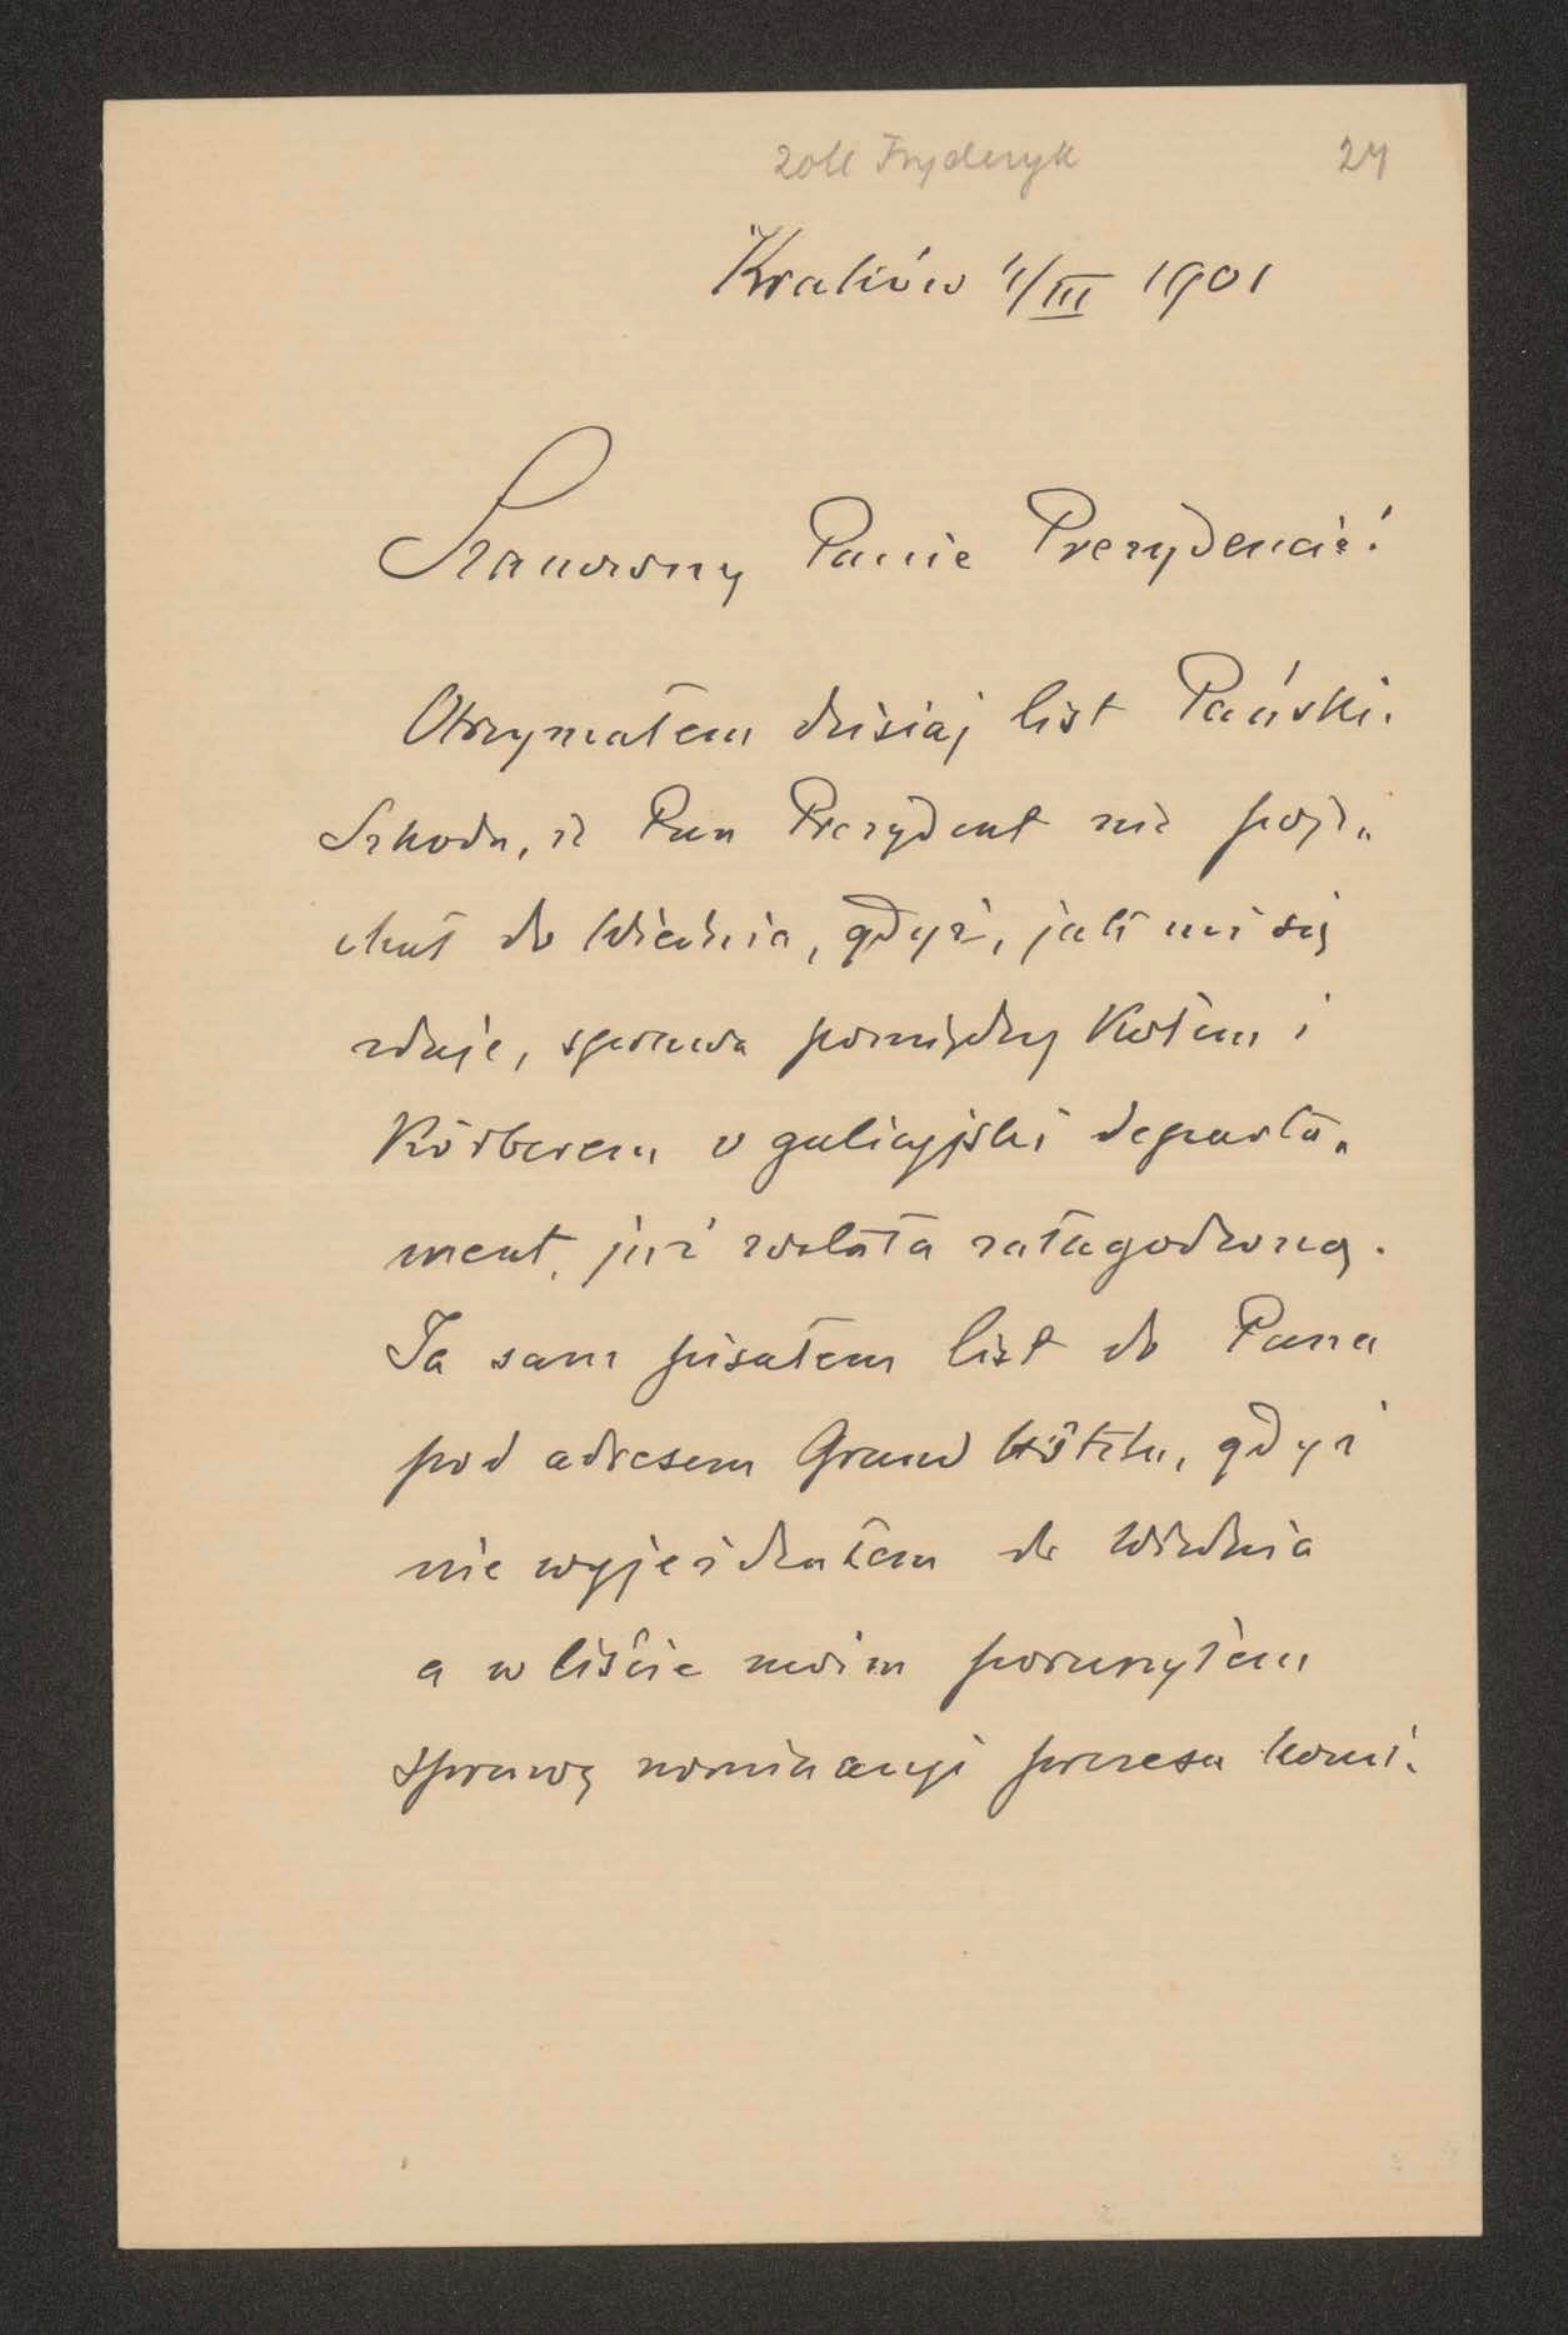 Zoll Fryderyk 24
Kraków 4/III 1901
Szanowny Panie Prezydencie!
Otrzymałem dzisiaj list Pański.
Szkoda, iż Pan Prezydent nie poje„
chał do Wiednia, gdyż, jak mi się
zdaje, sprawa pomiędzy Kołem i
Körberem o galicyjski departa„
ment, już została załagodzoną.
Ja sam pisałem list do Pana
pod adresem Grand Hôtelu, gdyż
nie wyjeżdżałem do Wiednia
a w liście moim poruszyłem
sprawę nominacyi prezesa komi„